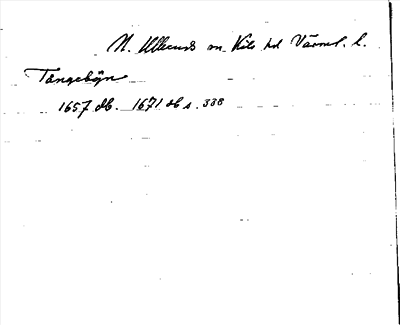 N. Ullerud sn. Kils hd Värml. l.
Tångebyn
1657 db. 1671 db s. 338